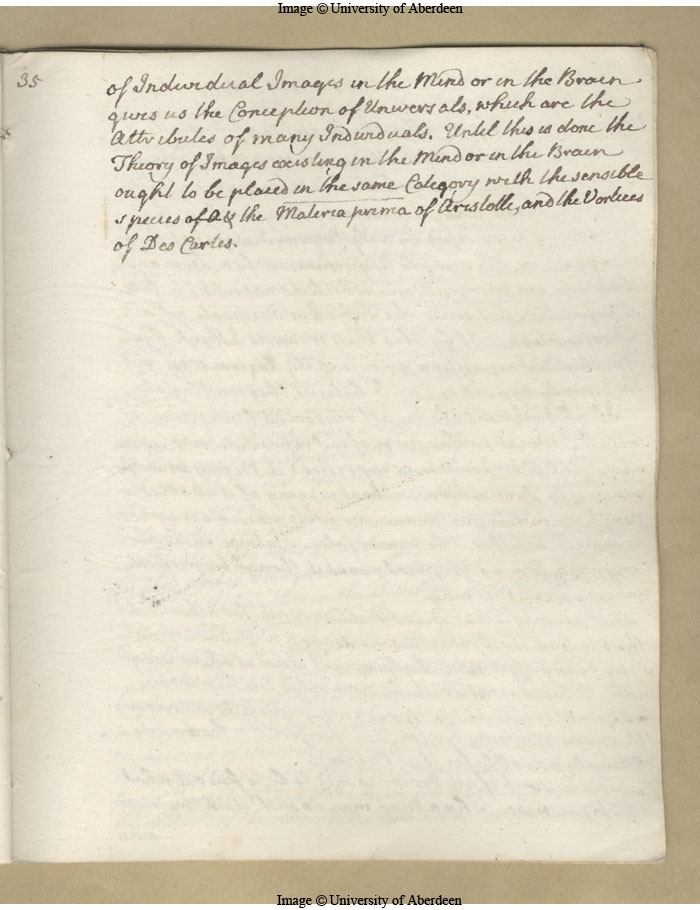 Image © University of Aberdeen
35
of Individual Images in the Mind or in the Brain
gives us the Conception of Universals, which are the
Attributes of many Individuals. Until this is done the
Theory of Images existing in the Mind or in the Brain
ought to be placed in the same Category with the sensible
species of & the Materia prima of Aristotle, and the Vortices
of Des Cartes.
Image © University of Aberdeen